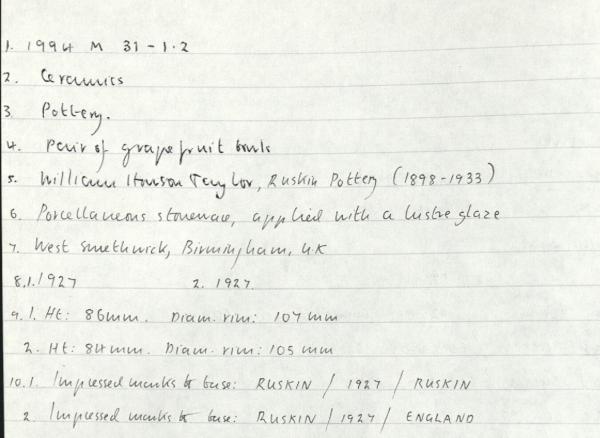 1. 1994 M 31-1.2
2. Ceramics
3 Pottery.
4. Pair of grapefruit bowls
5. William Howson Taylor, Ruskin Pottery (1898-1933)
6. Porcellaneous stoneware, applied with a lustre glaze
7. West Smethwick, Birmingham, UK
8.1. 1927 2. 1927.
9.1. Ht: 86mm. Diam. rim: 107mm
2. Ht: 84mm. Diam. rim: 105mm
10.1. Impressed marks to base: RUSKIN / 1927 / RUSKIN
2 Impressed marks to base: RUSKIN / 1927 / ENGLAND